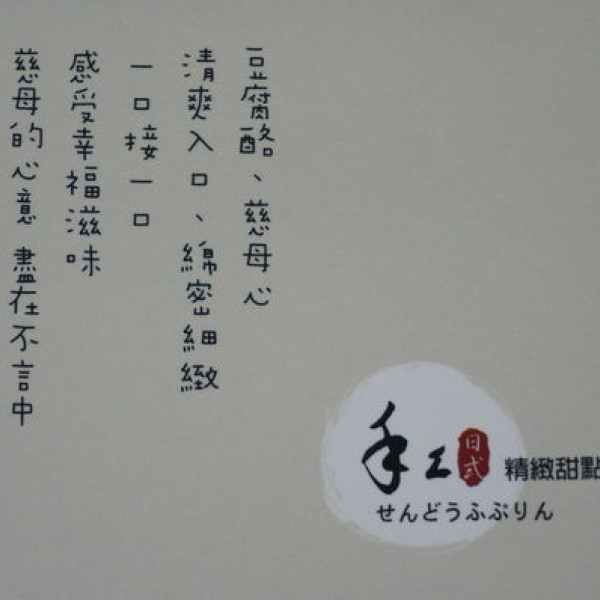 豆腐酪、慈母心
清爽入口、綿密細緻
一口接一口
感受幸福滋味
慈母的心意 盡在不言中
手工日式精緻甜點
せんどうふぷりん